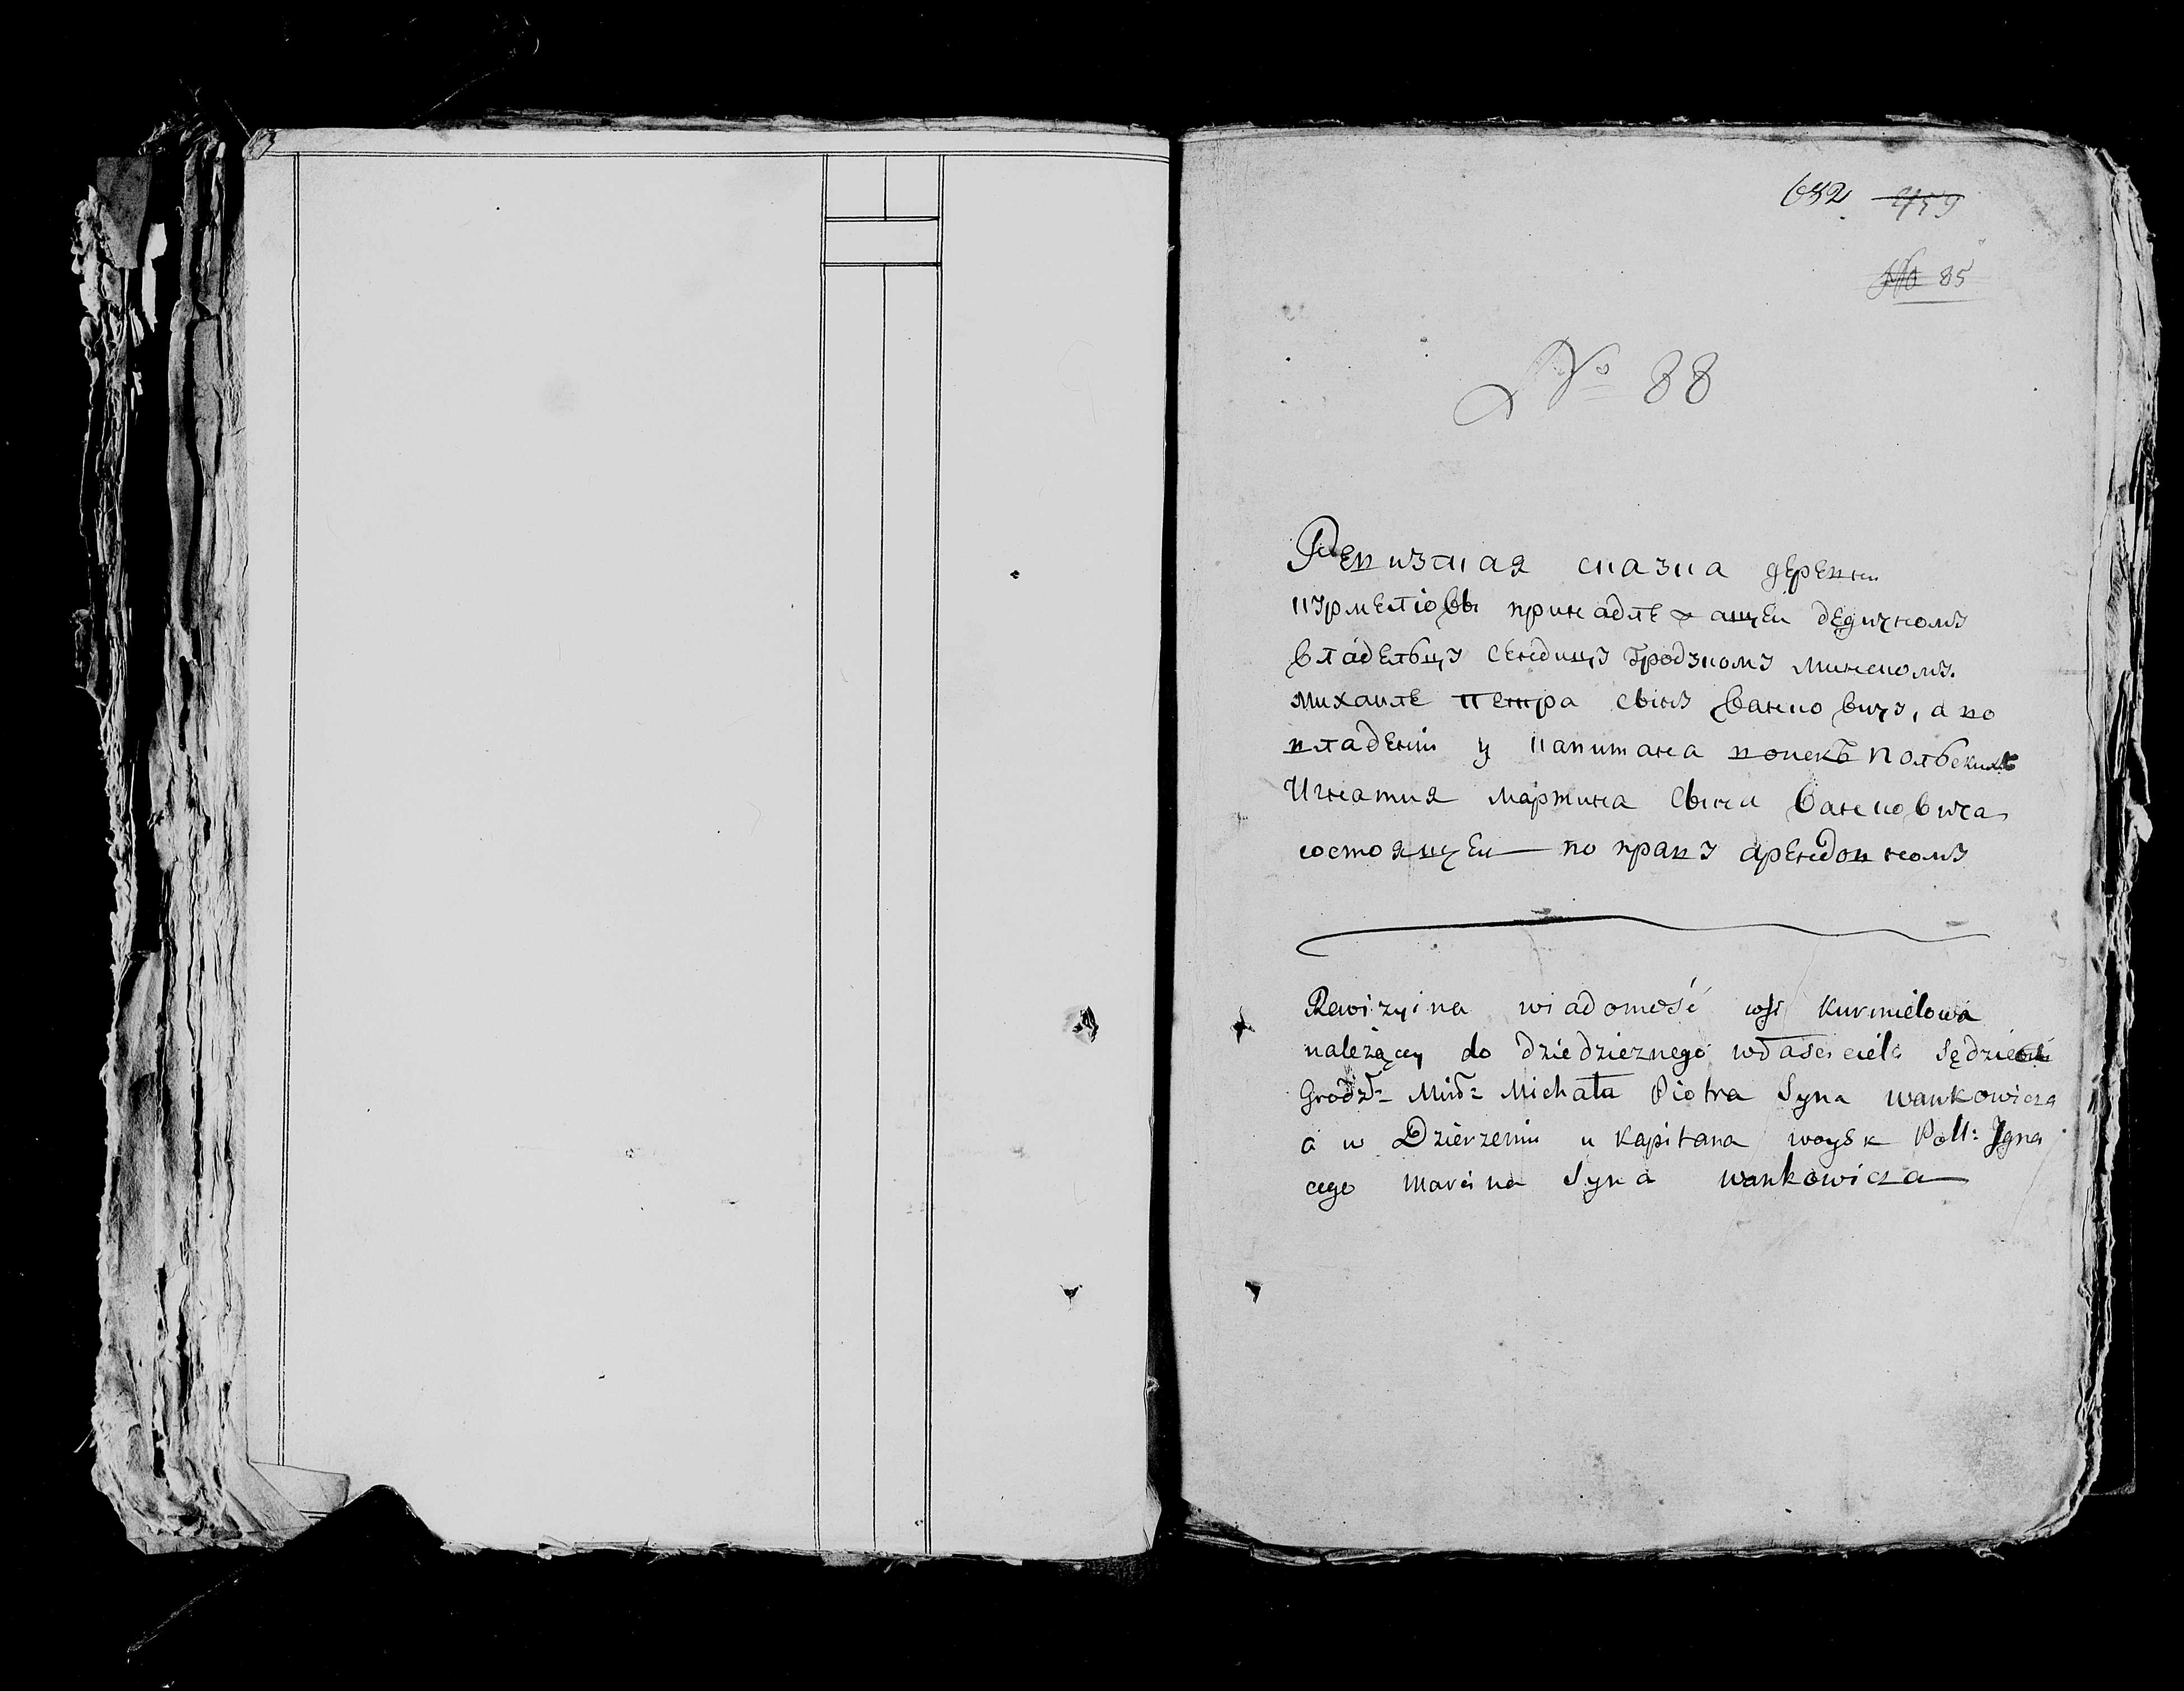 682 459
No 85
No 88
Ревизская сказка деревни
Курмелювы принадлежащеи дедичному
владельцу сендицу гродзкому минскому.
михаиле Петра сыну Ванковичу, а во
владении у капитана воиск Польских
Игнатия мартина сына Ванковича
состоящеи по праву арендовному
Rewizyina wiadomość wsi Kurmielowa
należącey do dziedzicznego własciciela Sędzica
Grodz: Miń: Michała Piotra Syna wankowicza
a w Dzierzeniu u kapitana woysk Poll: Igna
cego Marcina Syna wankowicza